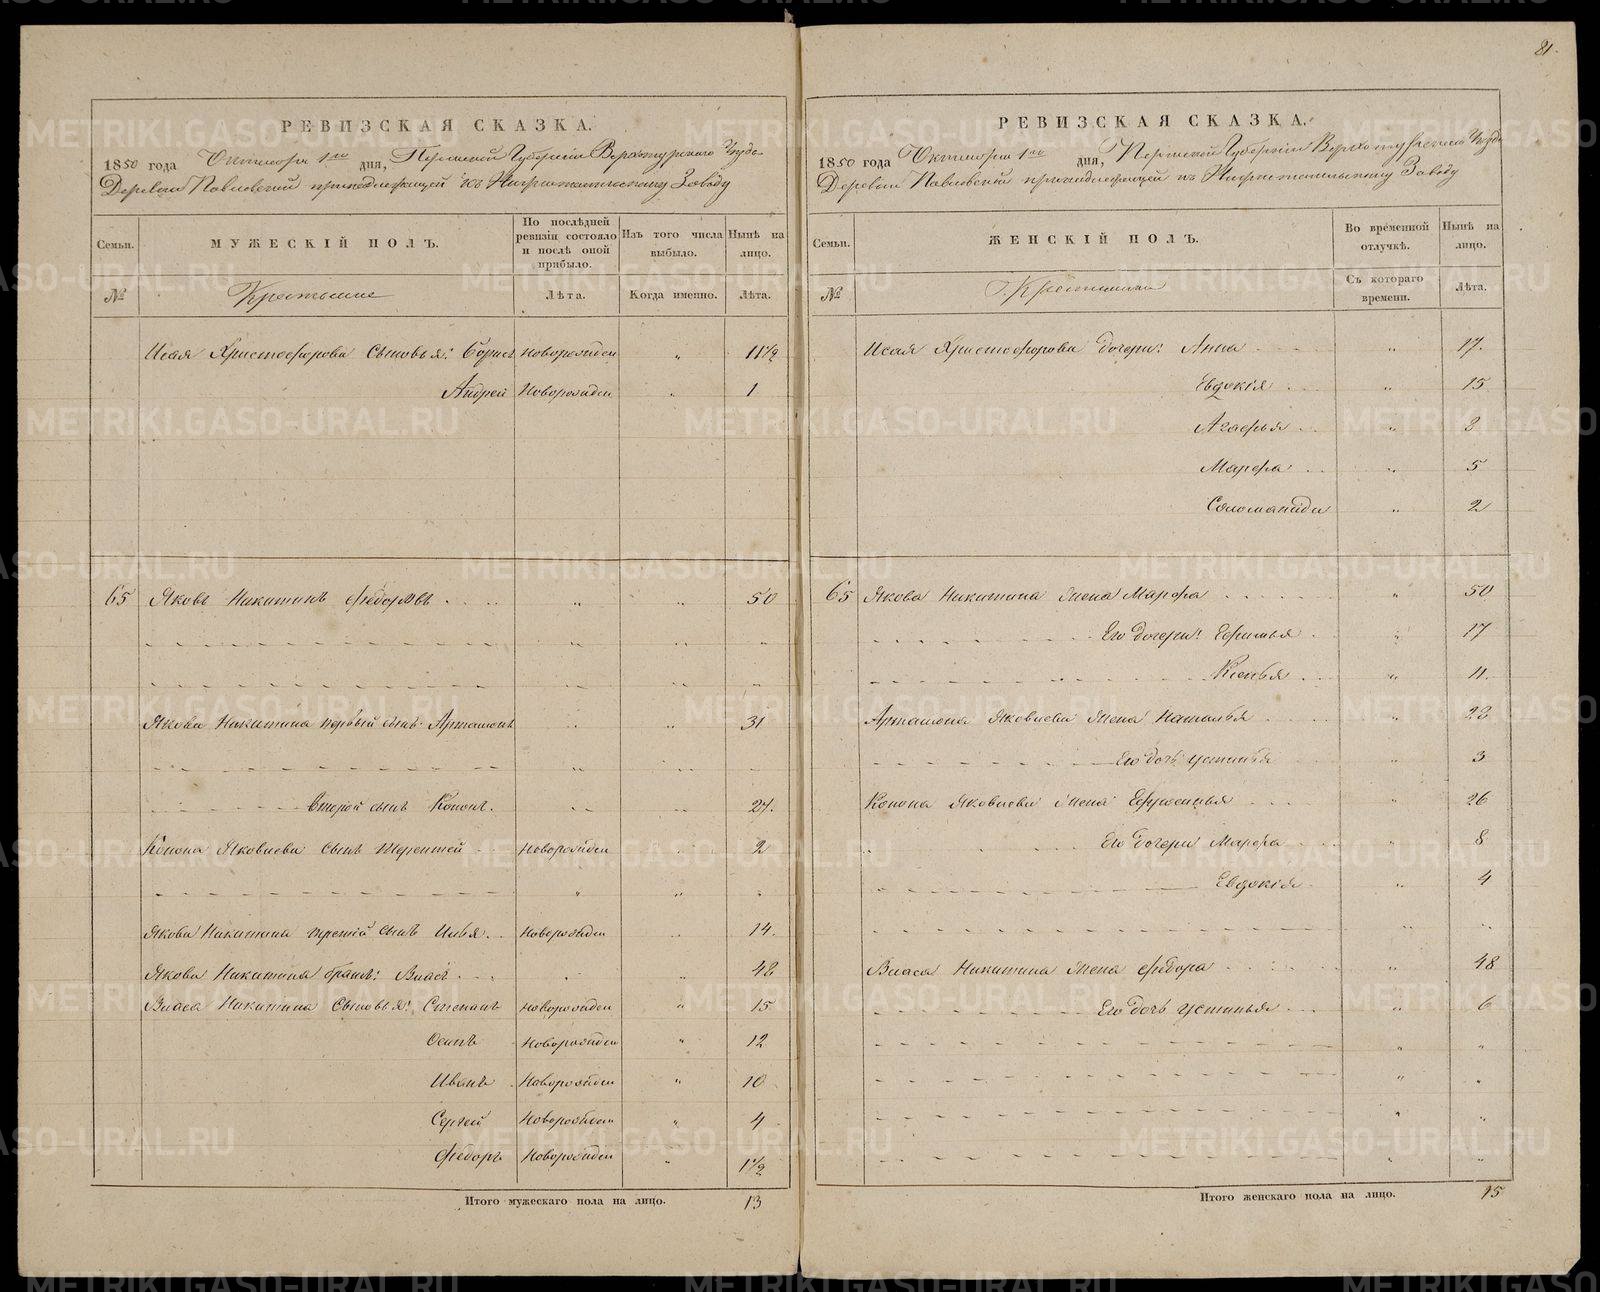 81.
РЕВИЗСКАЯ СКАЗКА.
1850 года Октября 1го дня, Пермской Губернии Верхотурского Уезда
Деревни Павловской принадлежащей Заводу
Семьи. МУЖЕСКІЙ ПОЛЪ. По послѣдней ревизіи состояло и послѣ оной прибыло. Изъ того числа выбыло. Нынѣ на лицо.
№ Крестьяне Лѣта. Когда именно. Лѣта.
Исая Христофорова Сыновья: Борисъ новорожден " 11 1/2
Андрей Новорожден " 1
65 Яковъ Никитинъ Федоровъ " " 50
Якова Никитина первый сынъ Артамонъ " " 31
Второй сынъ Кононъ. " " 27.
Конона Яковлева сынъ Терентей Новорожден " 2
Якова Никитина третій сынъ Илья Новорожден " 14.
Якова Никитина братъ: Власъ " " 48
Власа Никитина Сыновья: Степанъ Новорожден " 15
Осипъ Новорожден " 12
Иванъ Новорожден " 10
Сергей Новорожден " 4
Федоръ Новорожден " 1 1/2
Итого мужескаго пола на лицо. 13
РЕВИЗСКАЯ СКАЗКА.
1850 года Октября 1го дня, Пермской Губерніи Верхотурского Уезда
Деревни Павловской принадлежащей къ Заводу
Семьи. ЖЕНСКІЙ ПОЛЪ. Во временной отлучкѣ. Нынѣ на лицо.
№ Съ котораго времени. Лѣта.
Исая Христофорова дочери: Анна " 17.
Евдокія " 15
Агафья " 8
Марфа " 5
Соломанида " 2
65 Якова Никитина жена Марфа " 50
Его дочери: Ефимья " 17
Ксенья " 11.
Артамона Яковлева жена Наталья " 28
Его дочь Устинья " 3
Конона Яковлева жена Афросинья " 26
Его дочери Марфа " 8
Евдокія " 4
Власа Никитина жена Федора " 48
Его дочь Устинья " 6
Итого женскаго пола на лицо. 15
METRIKI.GASO-URAL.RU